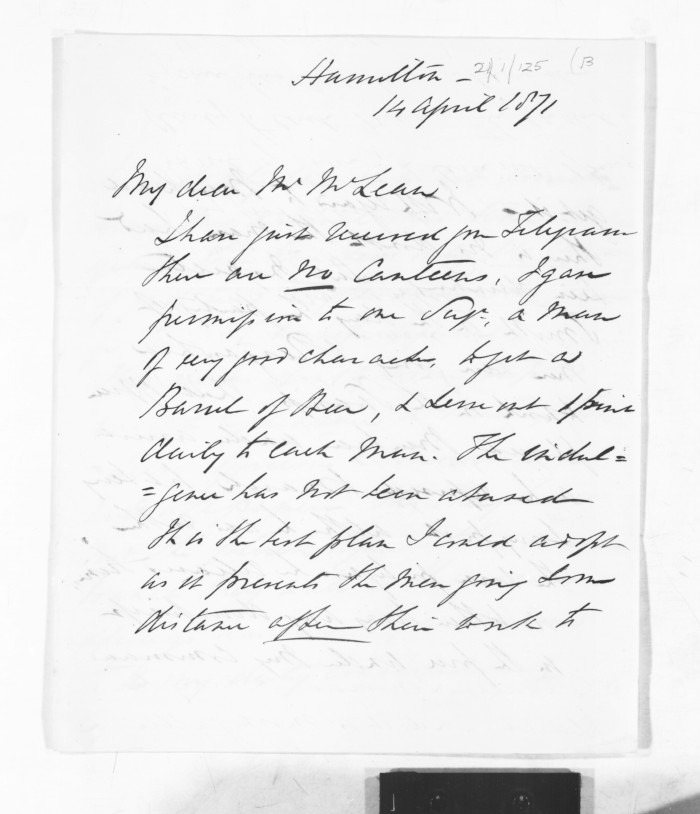 Hamilton - 21/1/125 (B
14 April 1871
My dear Mr McLean
I have just received your Telegram
there are No Canteens, I gave
permission to one Sergt, a man
of very good character, to get a
Barrel of Beer, & serve out 1 pint
daily to each Man. The indul=
=gence has not been abused
It is the best plan I could adopt
as it prevents the men going some
distance after their work to